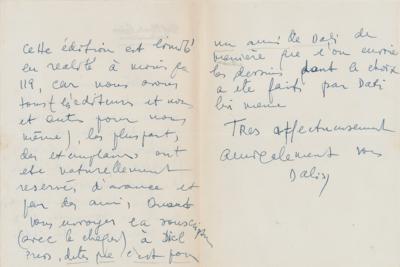 Cette édition est limité
en realité à moins ça
119, car nous avons
tous (les editeurs et nous
et autres pour nous
même), les plus part,
des exemplaires ont
ete naturellement
reservés d'avance et
par des amis, Quand
vous envoyez la
(avec le cheque) à
dites que c'est pour
un ami de Dali de
manière que l'on envoie
les dessins dont le choix
a ete faiti par Dali
lui meme
Tres affectueusement
amicalement vos
Dalis